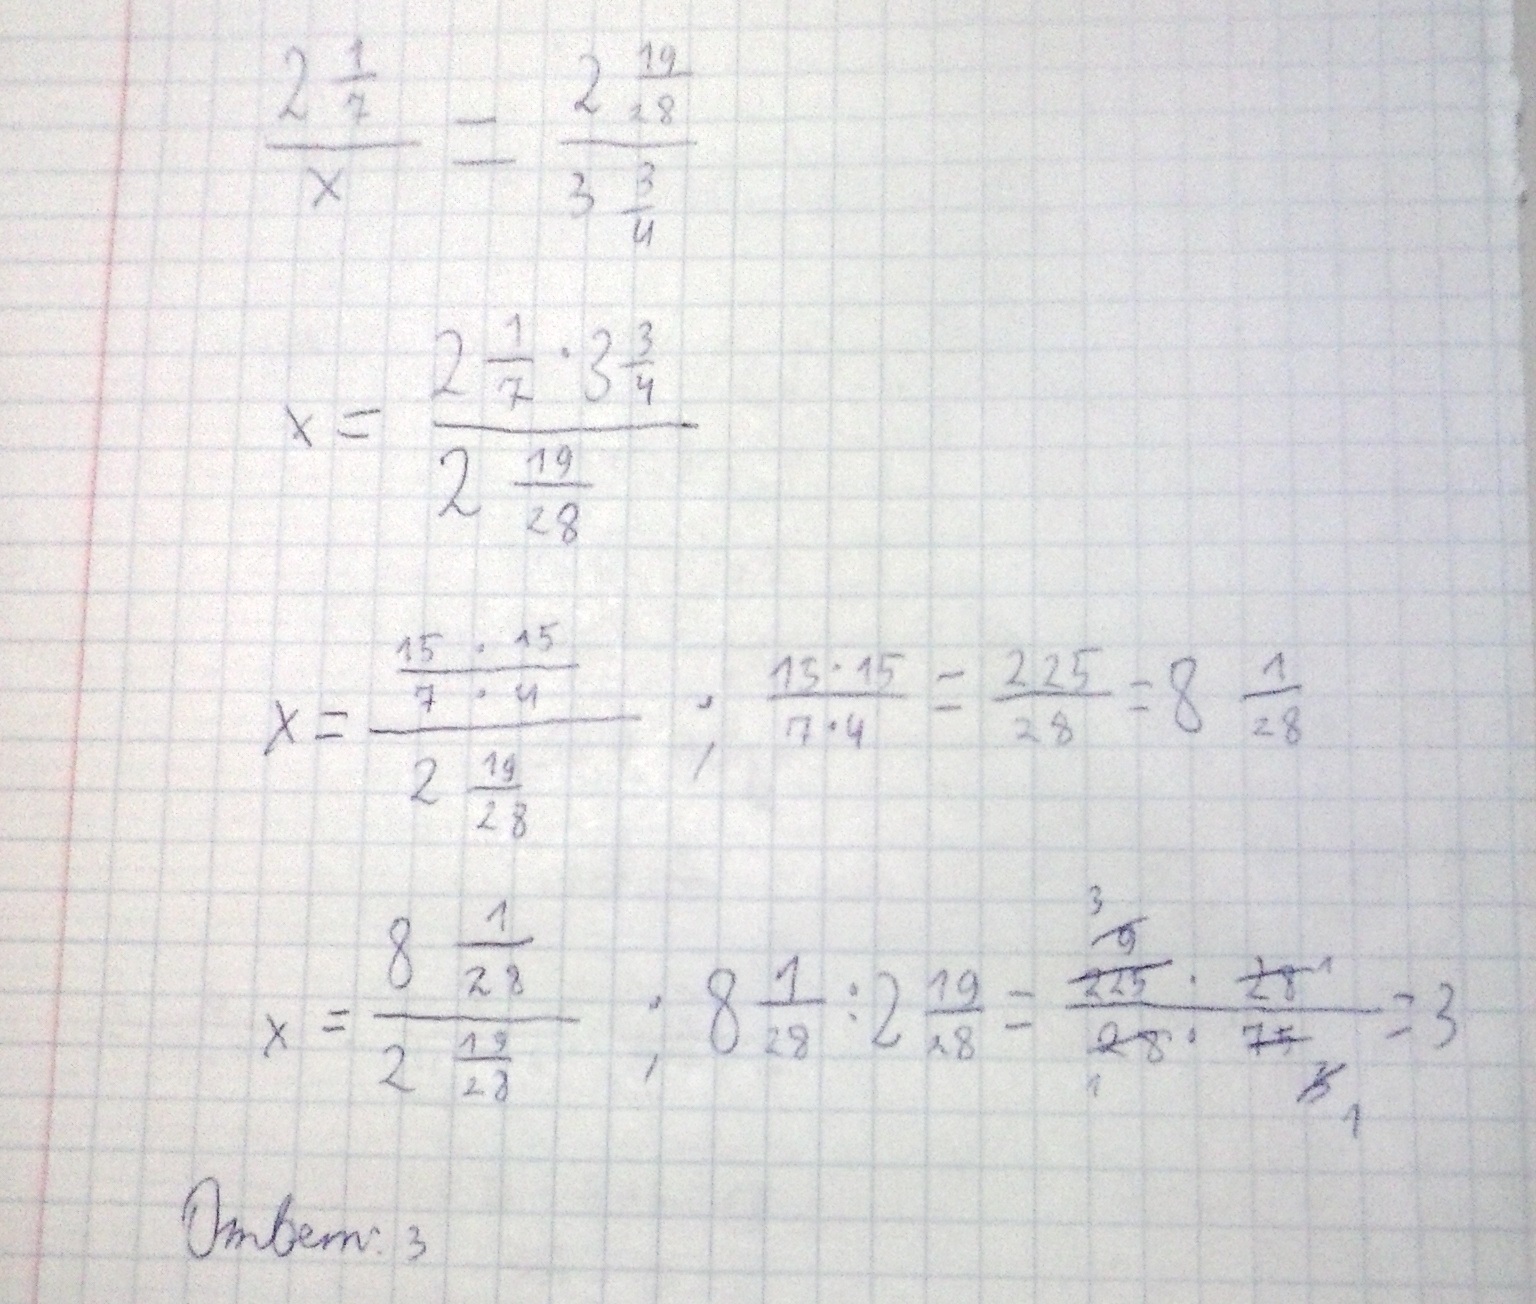 2 1/7 / x = 2 19/28 / 3 3/4
x = 2 1/7 · 3 3/4 / 2 19/28
x = 15 · 15 / 7 · 4 / 2 19/28 ; 15 · 15 / 7 · 4 = 225/28 = 8 1/28
x = 8 1/28 / 2 19/28 ; 8 1/28 : 2 19/28 = 3 9 225 · 28 1 / 1 28 · 75 3 1 = 3
Ответ: 3